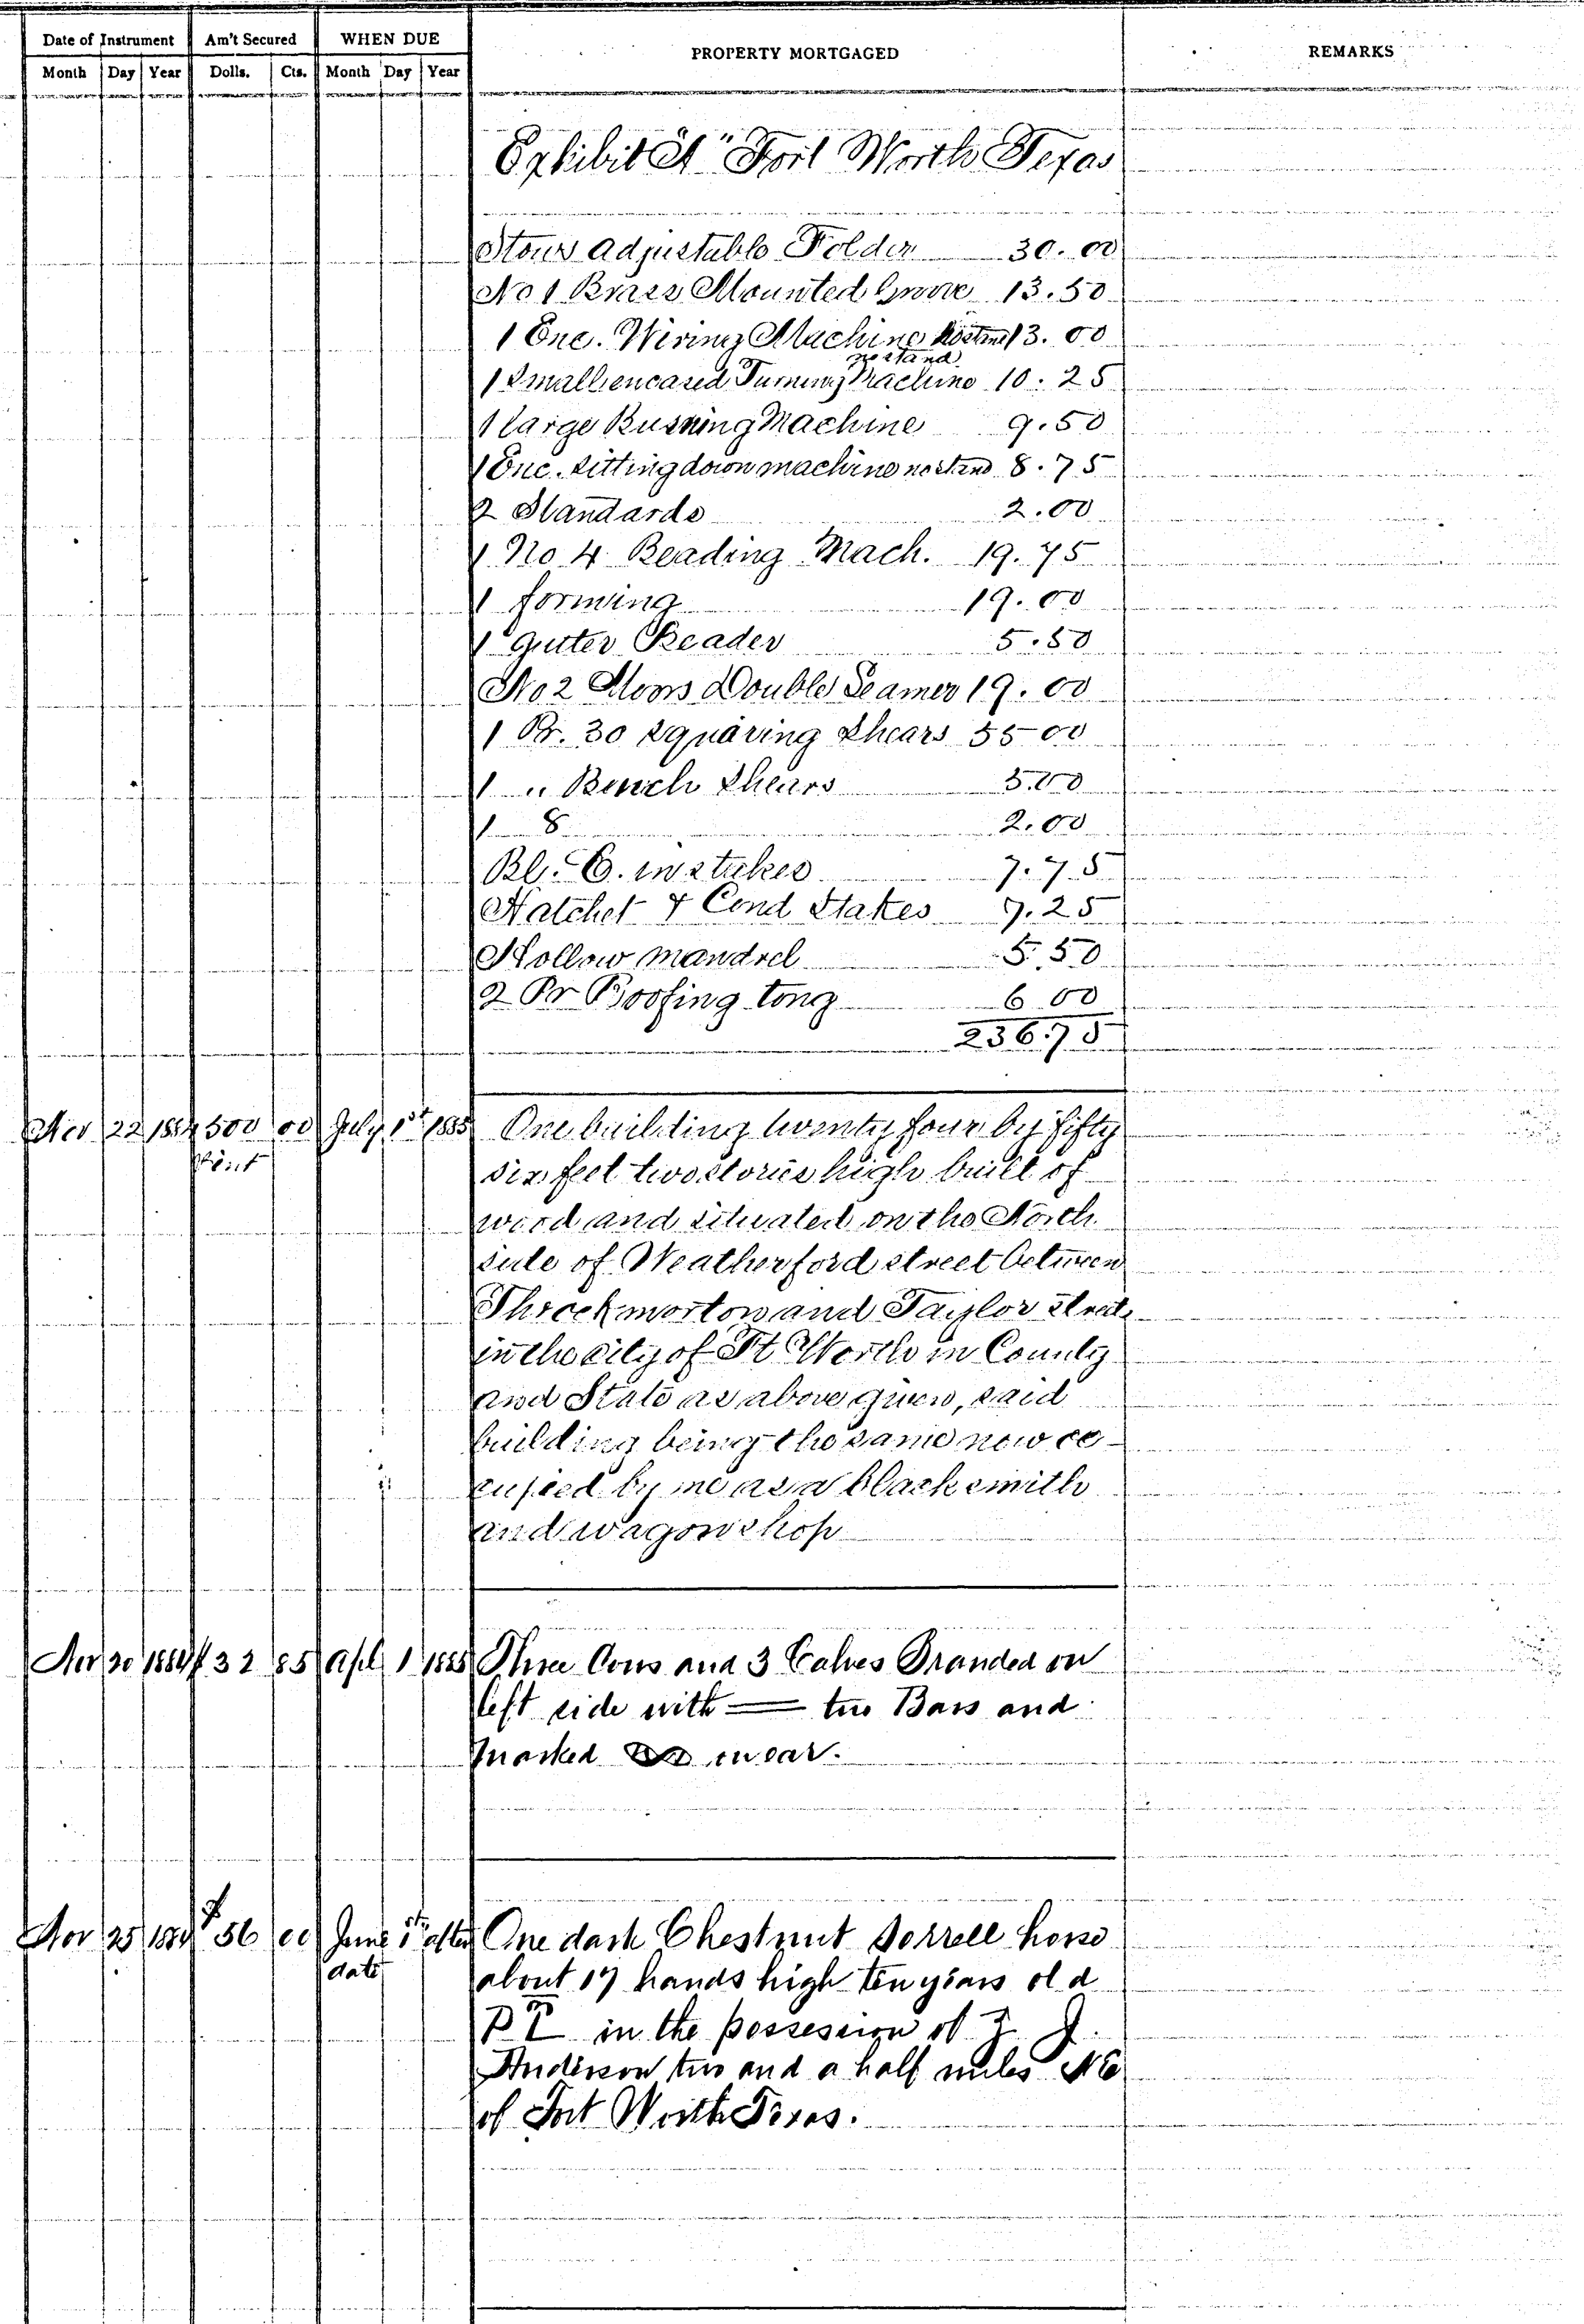 Date of Instrument Am't Secured WHEN DUE PROPERTY MORTGAGED REMARKS
Month Day Year Dolls. Cts. Month Day Year
Exhibit "A" Fort Worth Texas
Stows Adjustable Folder 30.00
No 1 Brass Mounted Grove 13.50
1 Enc. Wiring Machine no stand 13.00
no stand
1 Small encased Turning Machine 10.25
1 large Burring Machine 9.50
1 Enc. Sitting down machine no stand 8.75
2 Standards 2.00
1 No 4 Beading Mach. 19.75
1 forming 19.00
1 Gutter Beader 5.50
No 2 Double Seamer 19.00
1 Pr. 30 Squaring Shears 55 00
1 " Bench Shears 5.00
1 8 2.00
Bl. C. in stakes 7.75
Hatchet & Cond Stakes 7.25
Hollow mandrel 5.50
2 Pr Roofing tong 6 00
236.75
Nov 22 1884 500 00 July 1st 1885 One building twenty four by fifty
six feet two stories high built of
wood and situated on the North
side of Weatherford street between
Throckmorton and Taylor Streets
in the city of Ft Worth in County
and State as above given, said
building being the same now oc-
cupied by me as a blacksmith
and wagon shop
Nov 20 1884 $32 85 Apl 1 1885 Three Cows and 3 Calves Branded on
left side with = two Bars and
Marked in ear.
Nov 25 1884 $56 00 June 1st after One dark Chestnut Sorrell horse
date about 17 hands high ten years old
in the possession of J. J.
Anderson two and a half miles NE
of Fort Worth Texas.